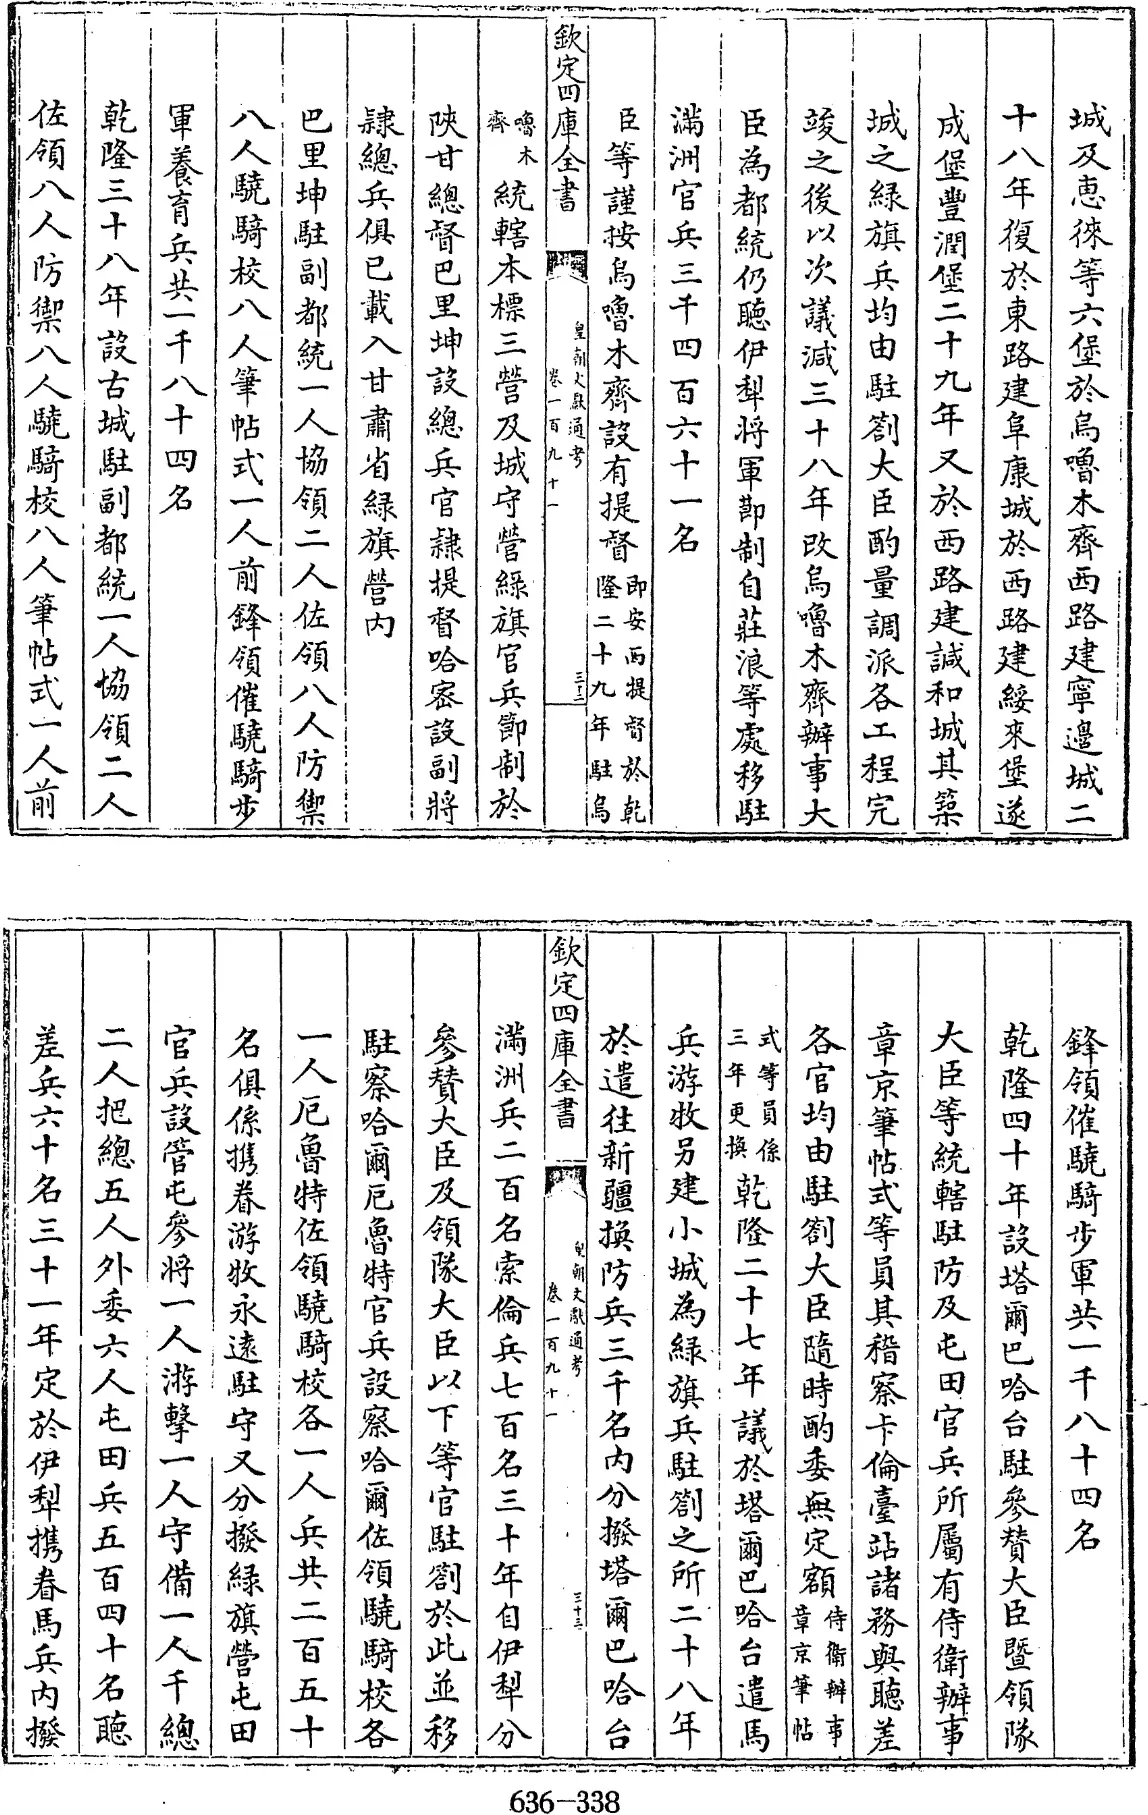 城及恵徠等六堡於烏嚕木齊西路建寧邊城二
十八年復於東路建阜康城於西路建綏來堡遂
成堡豐潤堡二十九年又於西路建誠和城其築
城之緑旗兵均由駐劄大臣酌量調派各工程完
竣之後以次議減三十八年改烏嚕木齊辦事大
臣為都統仍聽伊犁將軍節制自莊浪等處移駐
滿洲官兵三千四百六十一名
臣等謹按烏嚕木齊設有提督即安西提督於乾隆二十九年駐烏
欽定四庫全書
皇朝文獻通考
卷一百九十一
三十二
嚕木齊統轄本標三營及城守營緑旗官兵節制於
陜甘總督巴里坤設總兵官隸提督哈宻設副將
隸總兵俱已載入甘肅省緑旗營内
巴里坤駐副都統一人協領二人佐領八人防禦
八人驍騎校八人筆帖式一人前鋒領催驍騎步
軍養育兵共一千八十四名
乾隆三十八年設古城駐副都統一人協領二人
佐領八人防禦八人驍騎校八人筆帖式一人前
鋒領催驍騎步軍共一千八十四名
乾隆四十年設塔爾巴哈台駐參贊大臣暨領隊
大臣等統轄駐防及屯田官兵所屬有侍衛辦事
章京筆帖式等員其稽察卡倫臺站諸務與聽差
各官均由駐劄大臣隨時酌委無定額侍衛辦事章京筆帖
式等員係三年更換乾隆二十七年議於塔爾巴哈台遣馬
兵游牧另建小城為緑旗兵駐劄之所二十八年
於遣往新疆換防兵三千名内分撥塔爾巴哈台
欽定四庫全書
皇朝文獻通考
卷一百九十一
三十三
滿洲兵二百名索倫兵七百名三十年自伊犁分
參贊大臣及領隊大臣以下等官駐劄於此並移
駐察哈爾厄魯特官兵設察哈爾佐領驍騎校各
一人厄魯特佐領驍騎校各一人兵共二百五十
名俱係攜眷游牧永遠駐守又分撥緑旗營屯田
官兵設管屯參將一人游擊一人守備一人千總
二人把總五人外委六人屯田兵五百四十名聽
差兵六十名三十一年定於伊犁攜眷馬兵内撥
636-338